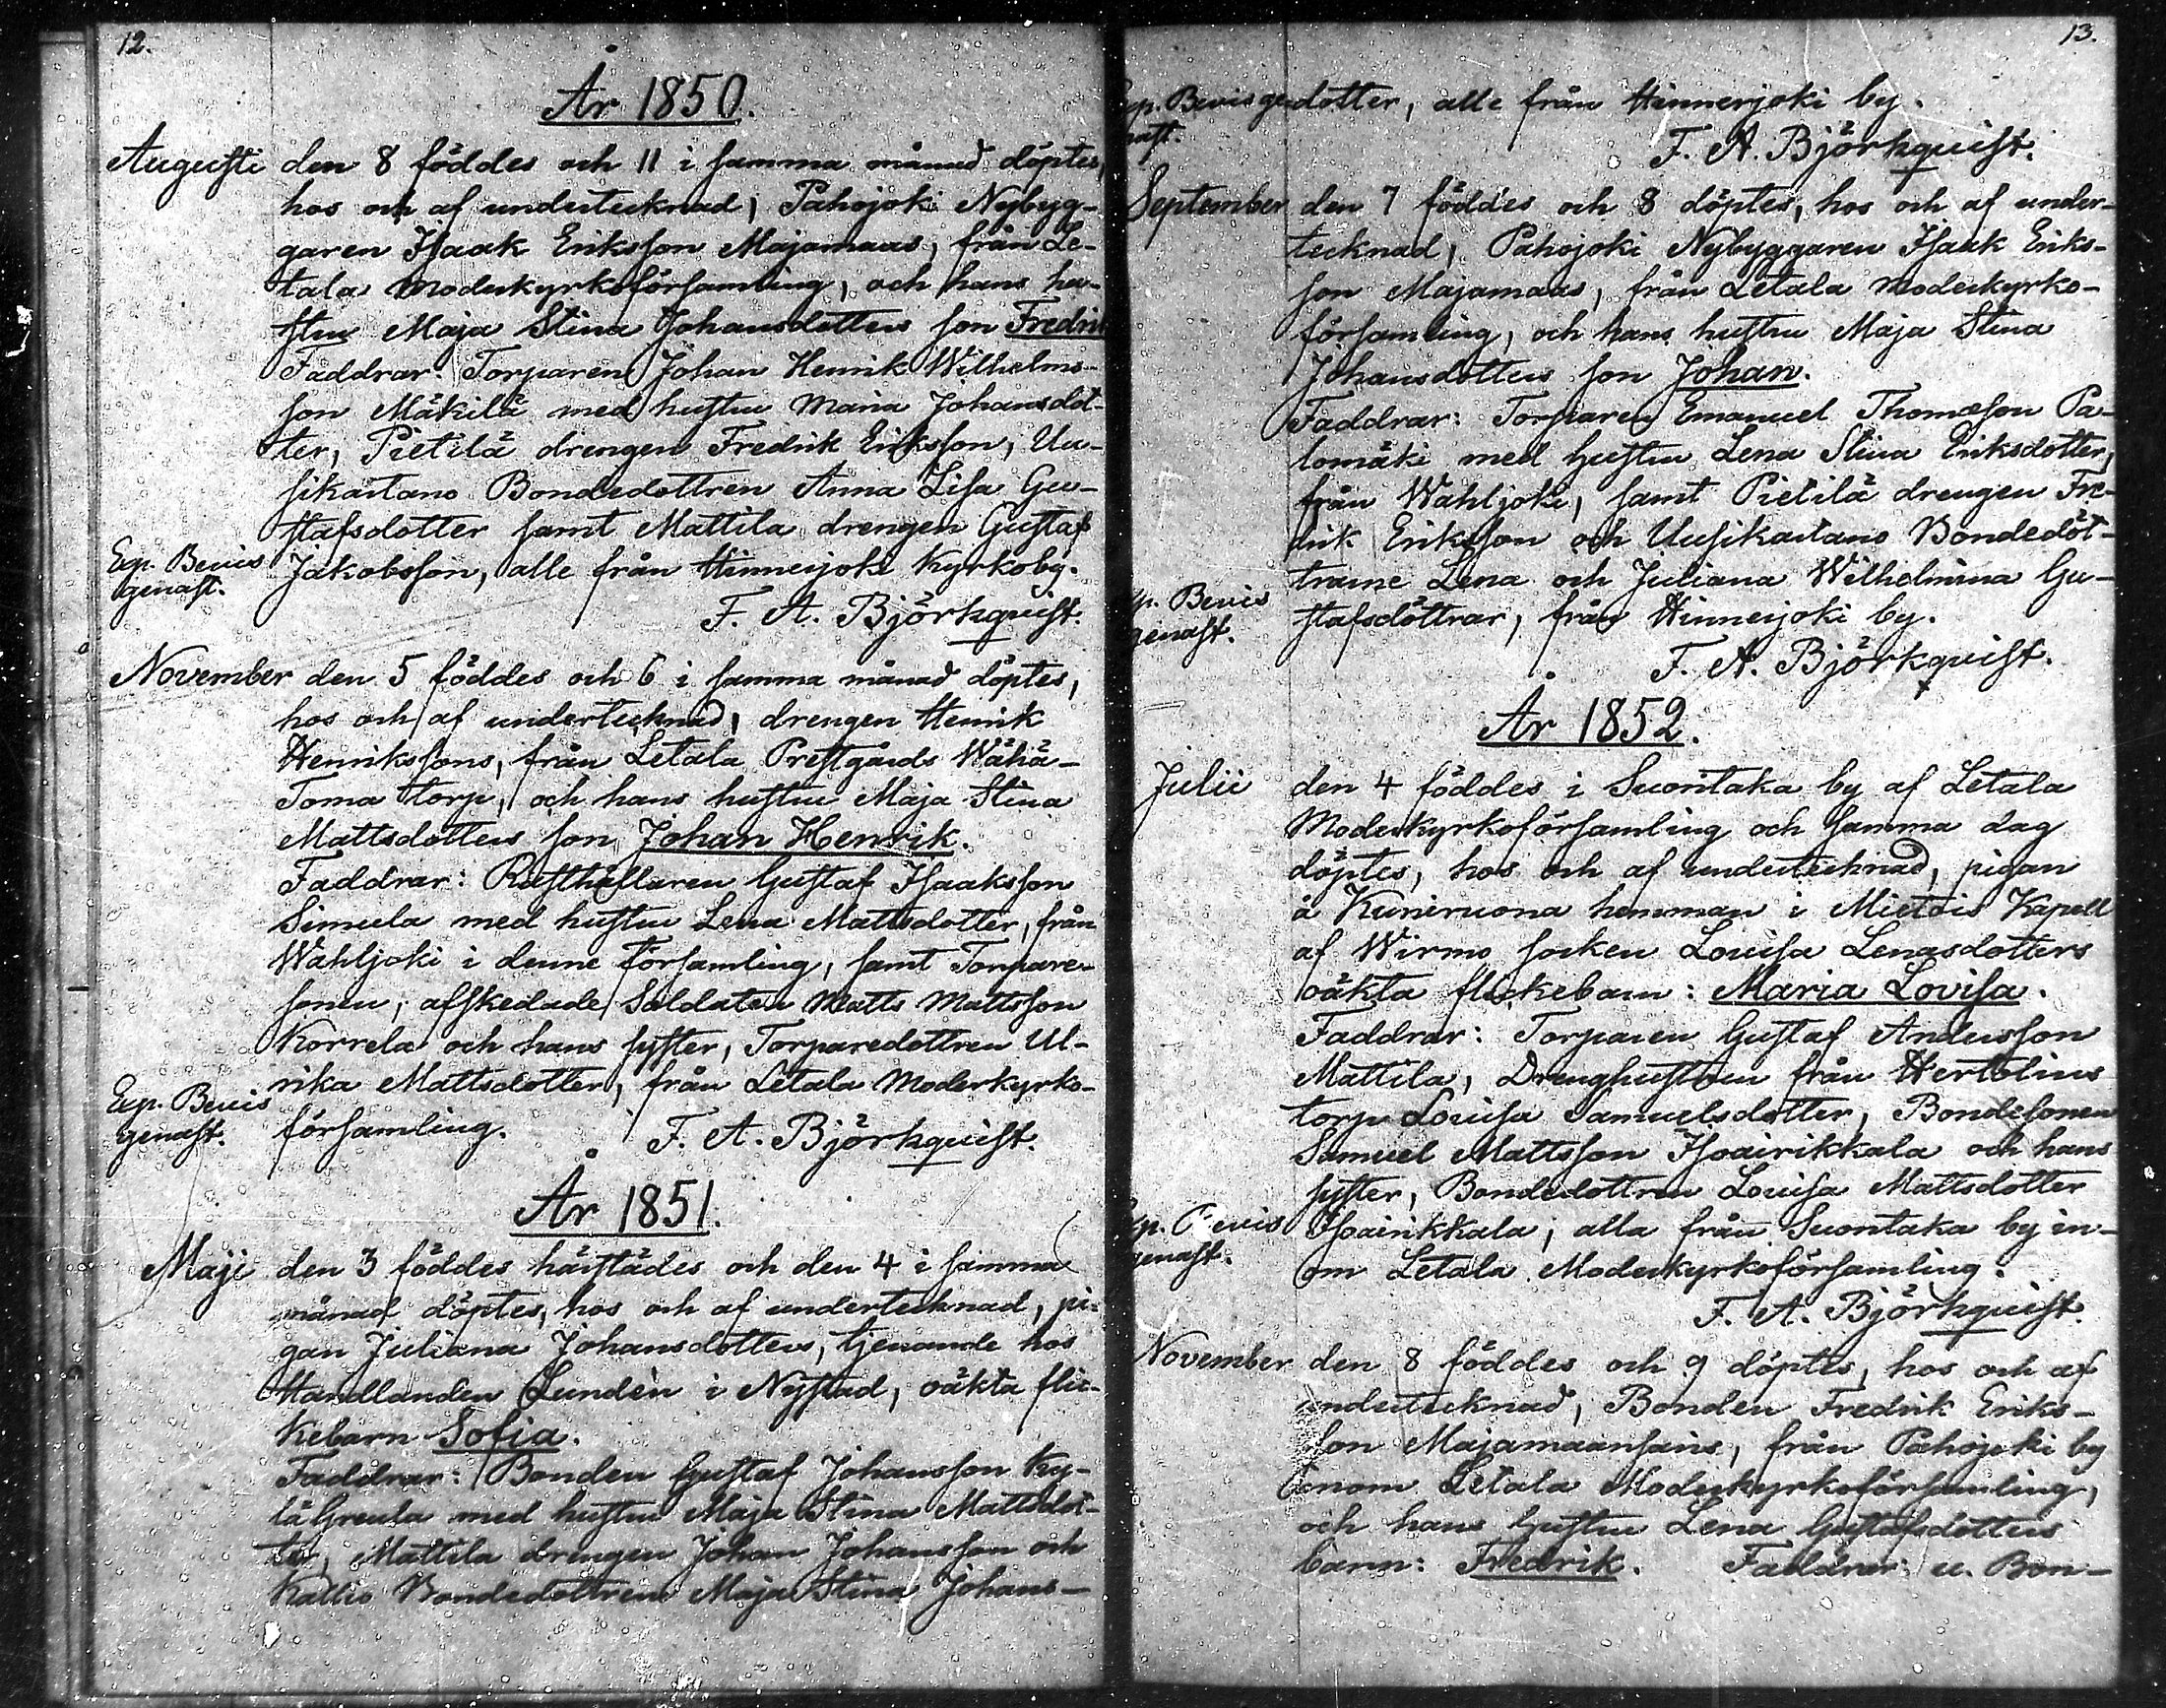 12.
År 1850.
Augusti den 8 föddes och 11 i samma månad döptes,
hos och af undertecknad, Pahojoki Nybyg-
garen Isaak Eriksson Majamaas, från Le-
tala Moderkyrkoförsamling, och hans hu-
stru Maja Stina Johansdotters son Fredrik
Faddrar: Torparen Johan Henrik Wilhelms-
son Mäkilä med hustru Maria Johansdot-
ter, Pietilä drengen Fredrik Eriksson, Uu-
sikartano Bondedottren Anna Lisa Gu-
stafsdotter samt Mattila drengen Gustaf
Exp. Bevis Jakobsson, alle från Hinnerjoki Kyrkoby.
genast.
F. A. Björkquist.
November den 5 föddes och 6 i samma månad döptes,
hos och af undertecknad, drengen Henrik
Henrikssons, från Letala Prestgårds Wähä-
Toma torp, och hans hustru Maja Stina
Mattsdotters son Johan Henrik.
Faddrar: Rusthållaren Gustaf Isaaksson
Simula med hustru Lena Mattsdotter, från
Wahljoki i denne församling, samt Torpare-
sonen, afskedade Soldaten Matts Mattsson
Korrela och hans syster, Torparedottren Ul-
rika Mattsdotter, från Letala Moderkyrko-
Exp. Bevis
genast. församling. F. A. Björkquist.
År 1851.
Maji den 3 föddes härstädes och den 4 i samma
månad döptes, hos och af undertecknad, pi-
gan Juliana Johansdotters, tjenande hos
Handlanden Lundén i Nystad, oäkta flic-
kebarn Sofia.
Faddrar: Bonden Gustaf Johansson Ky-
lä Greula med hustru Maja Stina Mattsdot-
ter, Mattila drengen Johan Johansson och
Kallio Bondedottren Maja Stina Johans-
13.
Exp. Bevis ge- dotter, alle från Hinnerjoki by.
nast.
F. A. Björkquist.
September den 7 föddes och 8 döptes, hos och af under-
tecknad, Pahojoki Nybyggaren Isaak Eriks-
son Majamaas, från Letala Moderkyrko-
församling, och hans hustru Maja Stina
Johansdotters son Johan.
Faddrar: Torparen Emanuel Thomasson Pa-
lomäki med hustru Lena Stina Eriksdotter,
från Wahljoki, samt Pietilä drengen Fre-
drik Eriksson och Uusikartano Bondedöt-
trarne Lena och Juliana Wilhelmina Gu-
Exp. Bevis
genast. stafsdöttrar, från Hinnerjoki by.
F. A. Björkquist.
År 1852.
Julii den 4 föddes i Suontaka by af Letala
Moderkyrkoförsamling och samma dag
döptes, hos och af undertecknad, pigan
å Kuneruona hemman i Mietois Kapell
af Wirmo socken Lovisa Lenasdotters
oäkta flickebarn: Maria Lovisa.
Faddrar: Torparen Gustaf Andersson
Mattila, Drenghustrun från Hertolins
torp Lovisa Samuelsdotter, Bondesonen
Samuel Mattsson Isoairikkala och hans
syster, Bondedottren Lovisa Mattsdotter
Exp. Bevis Isoairikkala, alla från Suontaka by in-
genast. om Letala Moderkyrkoförsamling.
F. A. Björkquist.
November den 8 föddes och 9 döptes, hos och af
undertecknad, Bonden Fredrik Eriks-
son Majamaansains, från Pahojoki by
inom Letala Moderkyrkoförsamling,
och hans hustru Lena Gustafsdotters
barn: Fredrik. Faddrar: u. Bon-